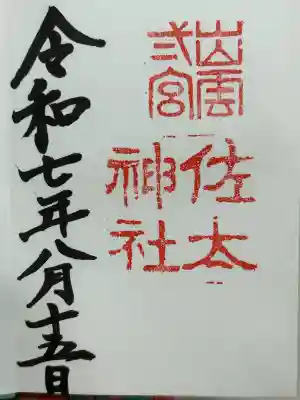 出雲
弍宮
佐太
神社
令和七年八月十五日